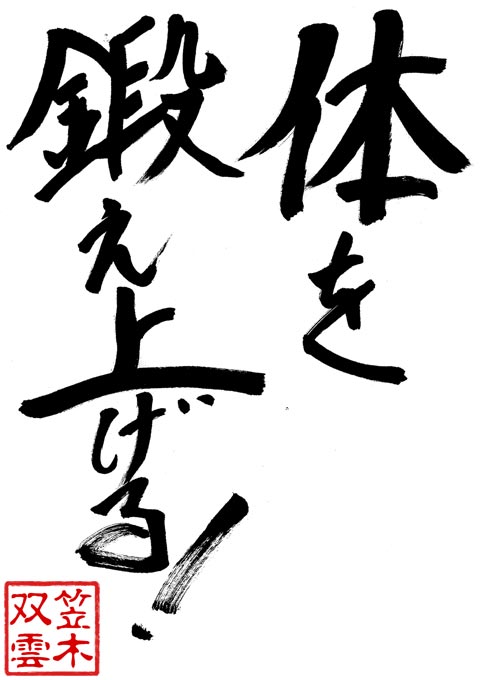 体を
鍛え上げる!
笠木
双雲